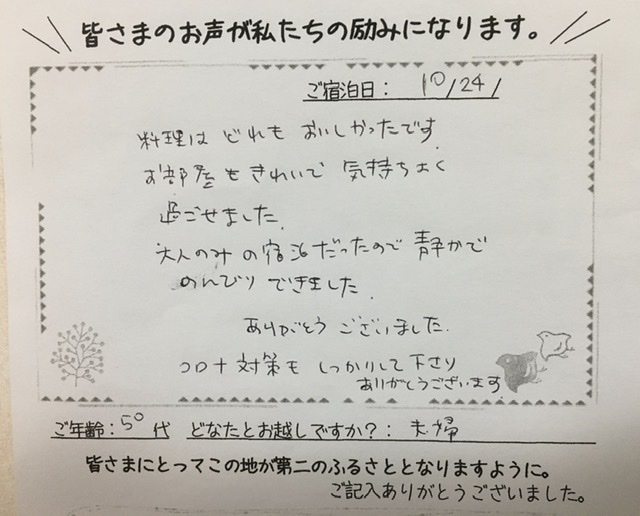 皆さまのお声が私たちの励みになります。
ご宿泊日： 10/24/
料理は どれも おいしかったです.
お部屋もきれいで 気持ちよく
過ごせました.
大人のみの宿泊だったので 静かで
のんびり できました.
ありがとう ございました.
コロナ対策も しっかりして下さり
ありがとうございます.
ご年齢：50代 どなたとお越しですか？： 夫婦
皆さまにとってこの地が第二のふるさととなりますように。
ご記入ありがとうございました。